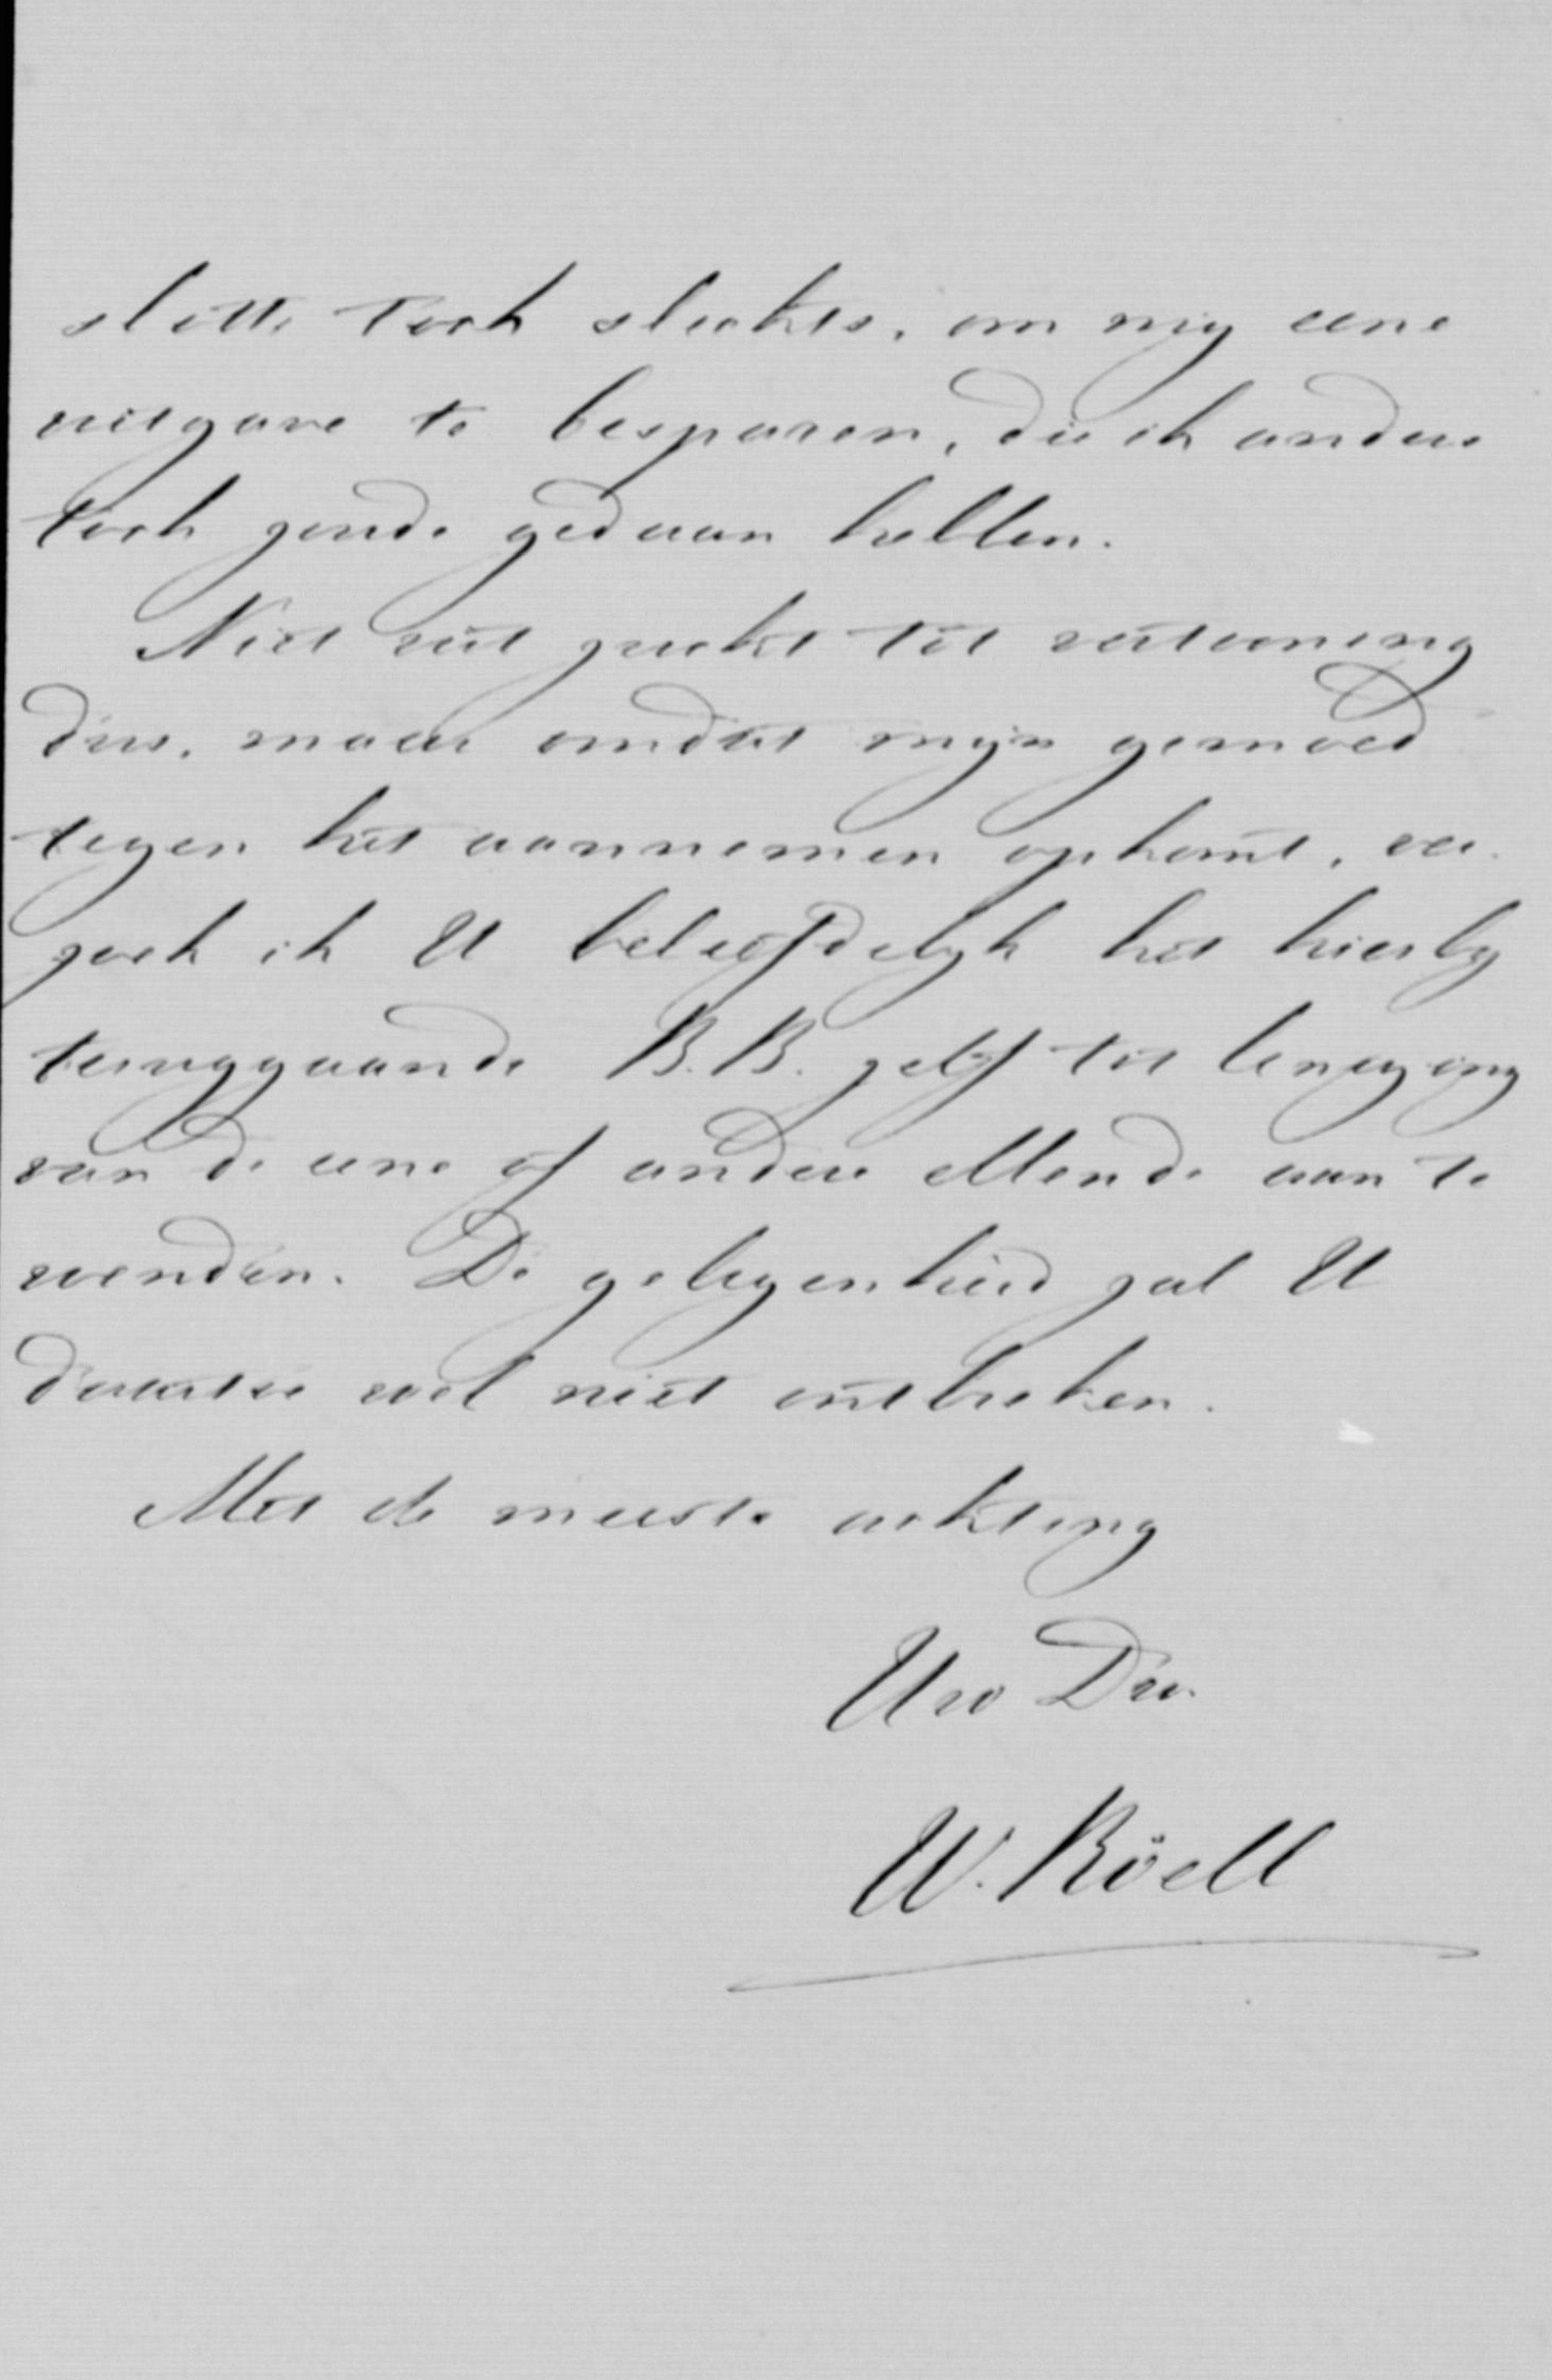 slotte toch slechts, om mij eene
uitgave te besparen, die ik anders
toch zoude gedaan hebben.
Niet uit zucht tot vertooning
dus, maar omdat mijn gemoed
tegen het aannemen opkomt, ver-
zoek ik U beleefdelijk het hierbij
teruggaande B.B. zelf tot leniging
van de eene of andere ellende aan te
wenden. De gelegenheid zal U
daartoe wel niet ontbreken.
Met de meeste achting
Uw Dw.
W. Röell